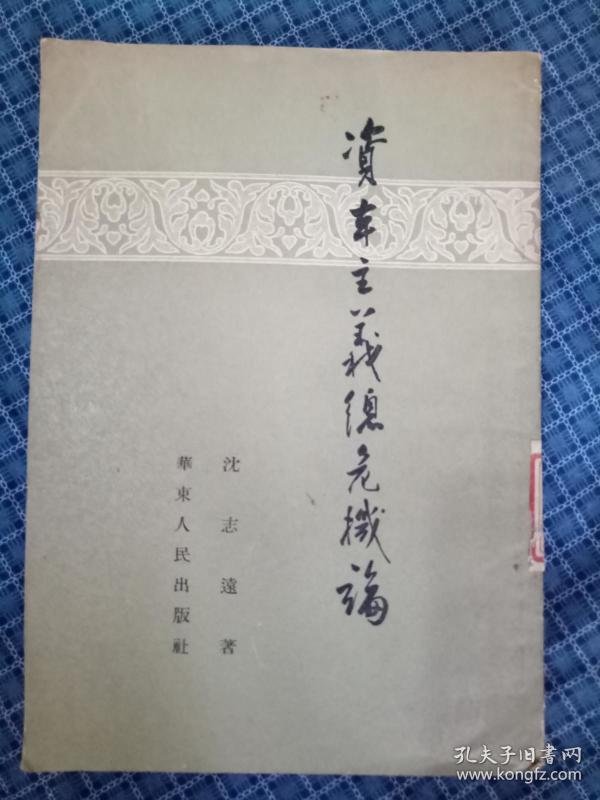 資本主義總危機論
沈志遠著
華東人民出版社
孔夫子旧書网
www.kongfz.com